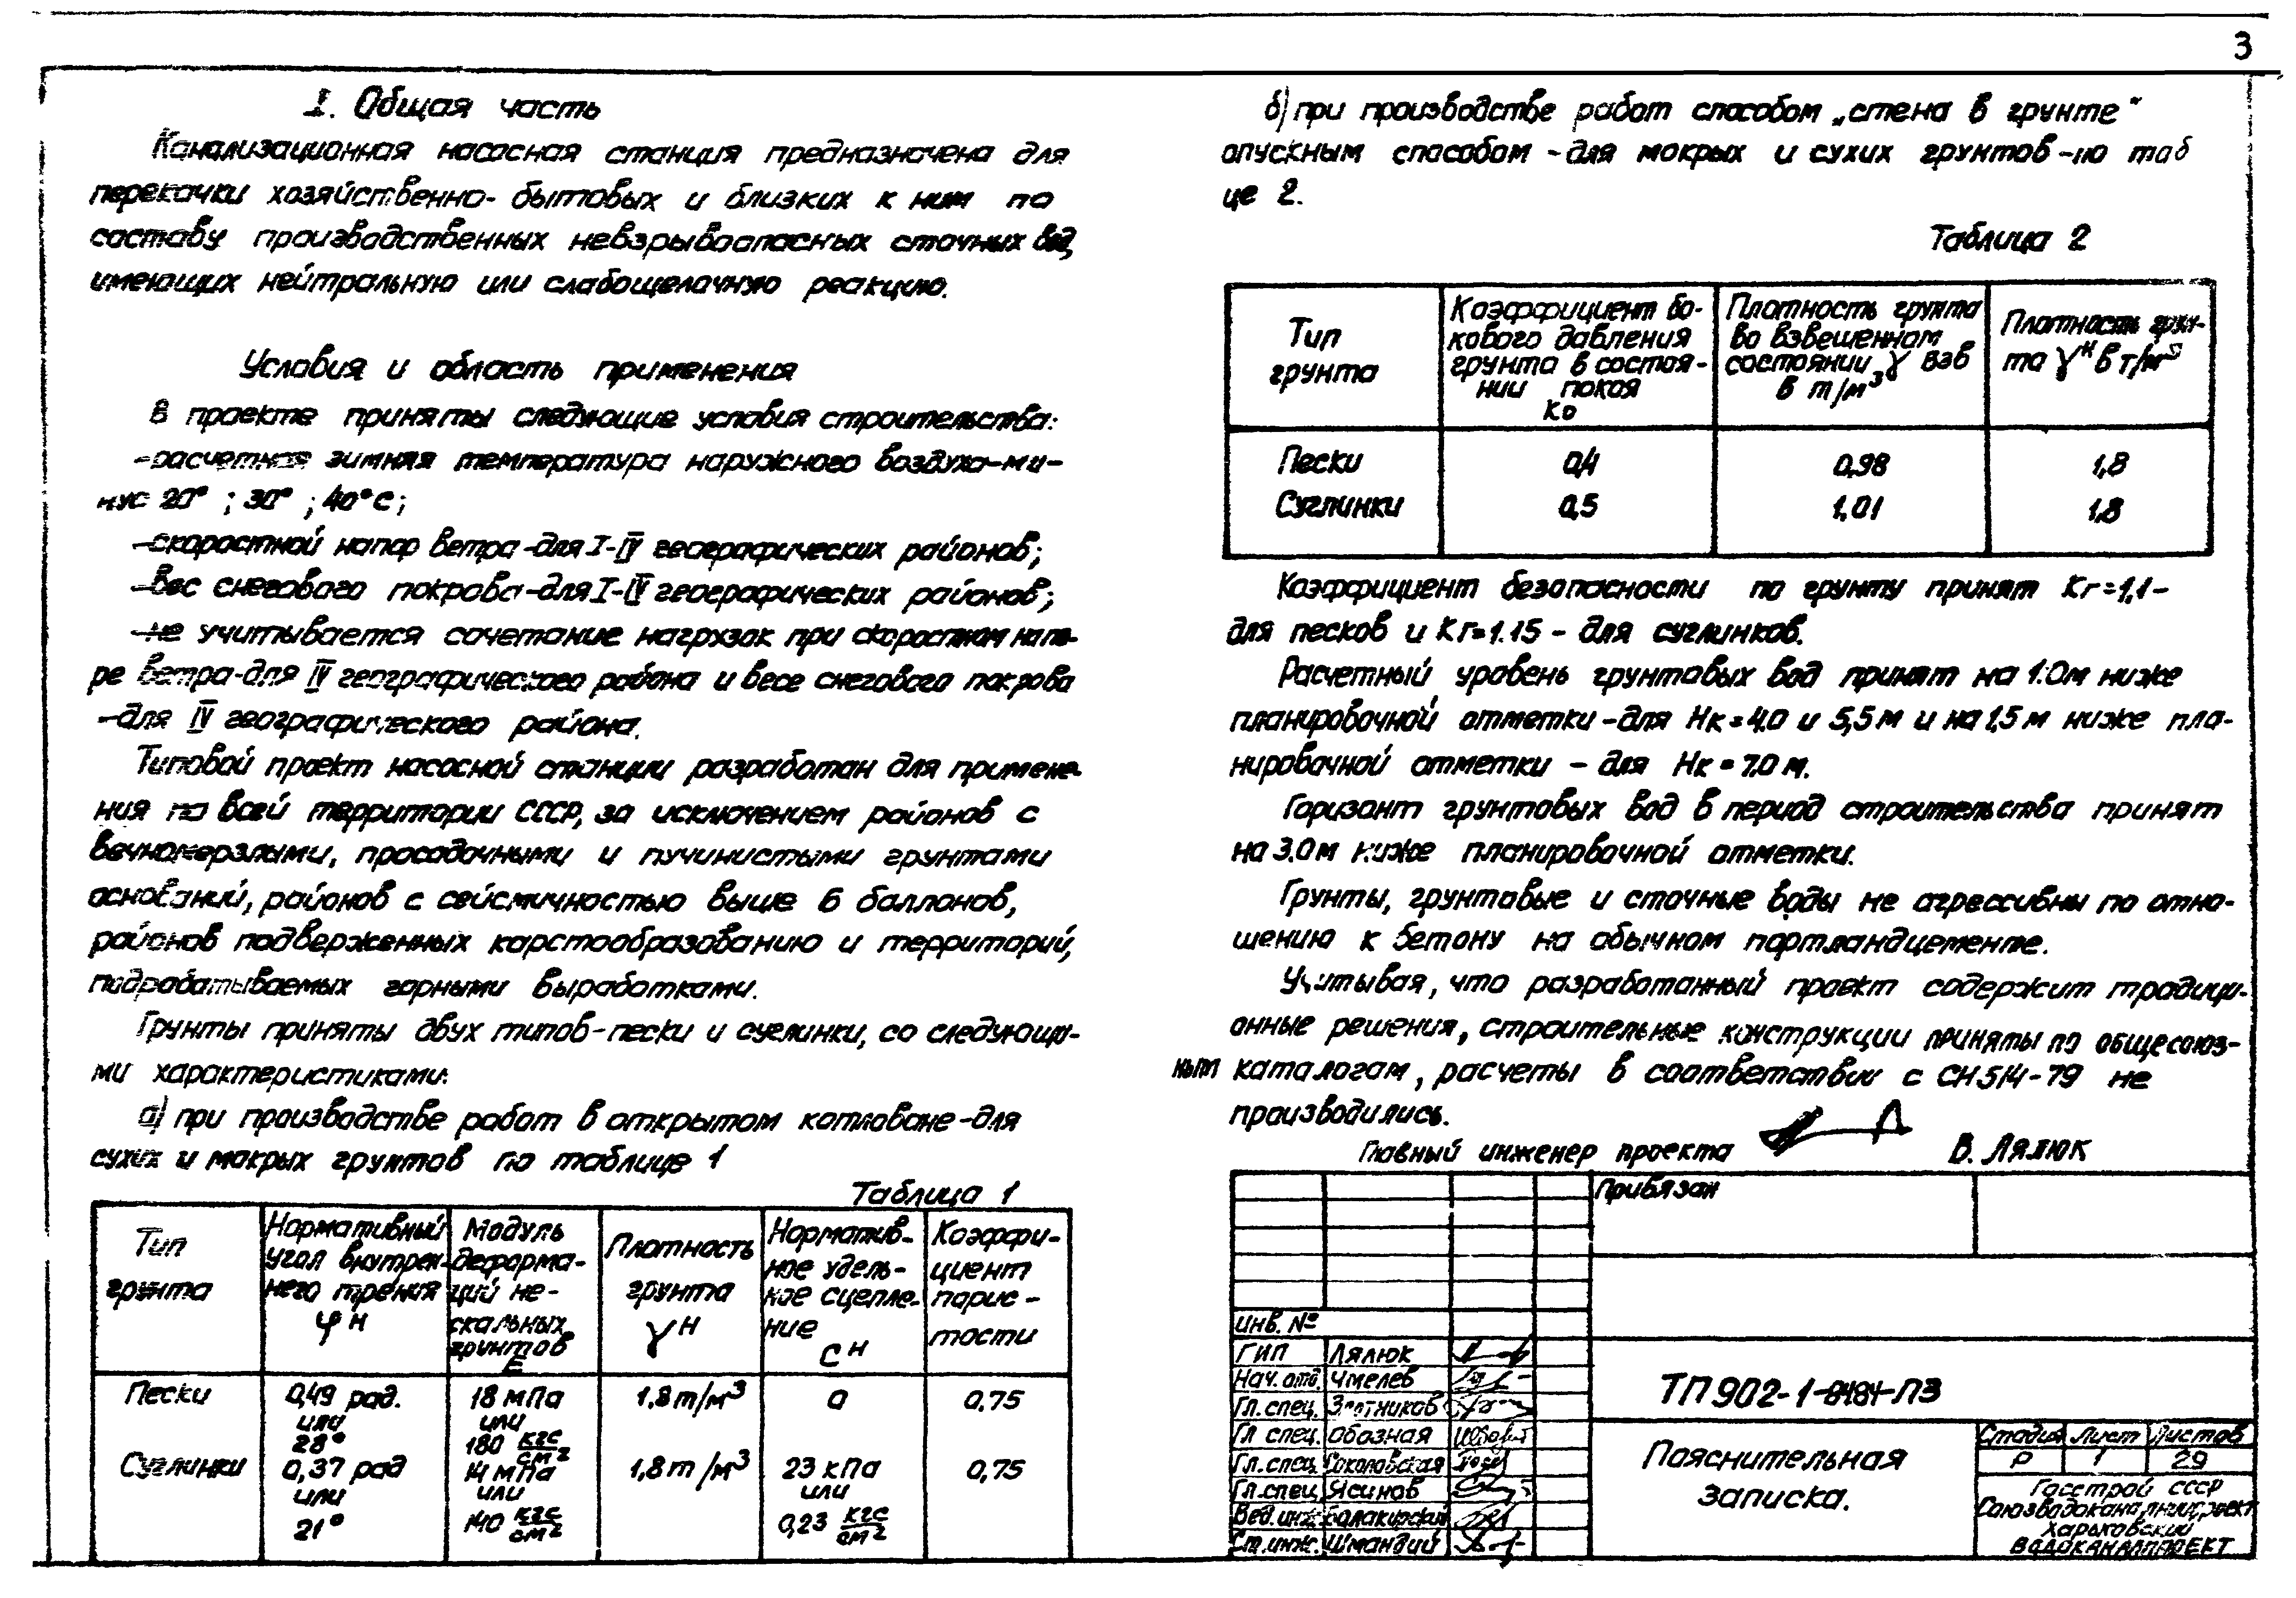 3
I. Общая часть
Канализационная насосная станция предназначена для
перекачки хозяйственно-бытовых и близких к ним по
составу производственных невзрывоопасных сточных вод,
имеющих нейтральную или слабощелочную реакцию.
Условия и область применения
В проекте приняты следующие условия строительства:
-расчетная зимняя температура наружного воздуха-ми-
нус 20° ; 30° ; 40°С;
-скоростной напор ветра-для I-IV географических районов;
-вес снегового покрова-для I-IV географических районов;
-не учитывается сочетание нагрузок при скоростном напо-
ре ветра-для IV географического района и весе снегового покрова
-для IV географического района.
Типовой проект насосной станции разработан для примене-
ния по всей территории СССР, за исключением районов с
вечномерзлыми, просадочными и пучинистыми грунтами
оснований, районов с сейсмичностью выше 6 баллонов,
районов подверженных карстообразованию и территорий,
подрабатываемых горными выработками.
Грунты приняты двух типов-пески и суглинки, со следующи-
ми характеристиками:
а) при производстве работ в открытом котловане-для
сухих и мокрых грунтов по таблице 1
Таблица 1
Тип грунта
Нормативный угол внутрен- него трения φн
Модуль деформа- ций не- скальных грунтов E
Плотность грунта γн
Норматив- ное удель- ное сцепле- ние Cн
Коэффи- циент порис- тости
Пески 0,49 рад. или 28° 18 мПа или 180 кгс/см2 1,8т/м3 0 0,75
Суглинки 0,37 рад или 21° 14 мПа или 140 кгс/см2 1,8т/м3 23 кПа или 0,23 кгс/см2 0,75
б) при производстве работ способом „стена в грунте"
опускным способом-для мокрых и сухих грунтов-по таб
це 2.
Таблица 2
Тип грунта
Коэффициент бо- кового давления грунта в состоя- нии покоя Ко
Плотность грунта во взвешенном состоянии γ взв в т/м3
Плотность грун- та γн в т/м3
Пески 0,4 0,98 1,8
Суглинки 0,5 1,01 1,8
Коэффициент безопасности по грунту принят Кг=1,1-
для песков и Кг=1.15 - для суглинков.
Расчетный уровень грунтовых вод принят на 1.0м ниже
планировочной отметки-для Нк=4.0 и 5,5м и на 1,5м ниже пла-
нировочной отметки - для Нк=7.0 м.
Горизонт грунтовых вод в период строительства принят
на 3.0м ниже планировочной отметки.
Грунты, грунтовые и сточные воды не агрессивны по отно-
шению к бетону на обычном портландцементе.
Учитывая, что разработанный проект содержит традици-
онные решения, строительные конструкции приняты по общесоюз-
ным каталогам, расчеты в соответствии с СН514-79 не
производились.
Главный инженер проекта В. Лялюк
Привязан
инв. №
ГИП Лялюк
Нач. отд. Чмелев
Гл. спец. Злотников
Гл спец. Обозная
Гл. спец. Соколовская
Гл. спец Ясинов
Вед. инж. Балакирский
Ст. инж. Шмандий
ТП 902-1-84.84-ПЗ
Пояснительная
записка.
Стадия Лист Листов
Р 1 29
Госстрой СССР
Союзводоканалниипроект
Харьковский
ВОДОКАНАЛПРОЕКТ